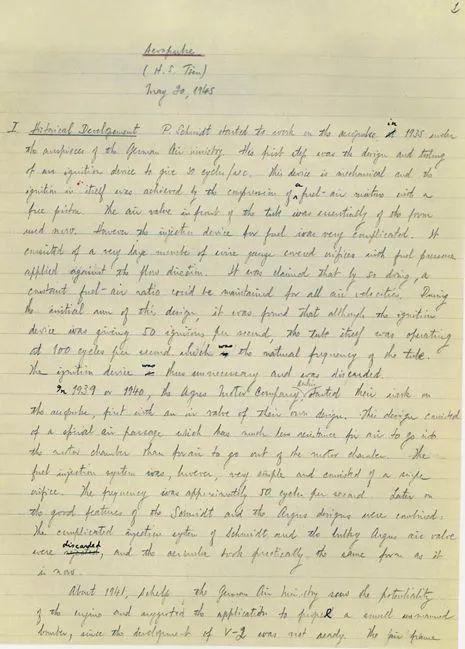 1
Aeropulse
(H. S. Tsien)
May 20, 1945
I. Historical Development P. Schmidt started to work on the aeropulse in 1935 under
the auspices of the German Air ministry. His first step was the design and testing
of an ignition device to give 50 cycles/sec. This device is mechanical and the
ignition itself was achieved by the compression of a fuel-air mixture with a
free piston. The air valve in front of the tube was essentially of the form
used now. However the injection device for fuel was very complicated. It
consisted of a very large number of wire gauge covered orifices with fuel pressure
applied against the flow direction. It was claimed that by so doing, a
constant fuel-air ratio could be maintained for all air velocities. During
the initial run of this design, it was found that although the ignition
device was giving 50 ignitions per second, the tube itself was operating
at 100 cycles per second which was the natural frequency of the tube.
The ignition device was thus unnecessary and was discarded.
In 1939 or 1940, the Argus Motor Company started their work on
the aeropulse, first with an air valve of their own design. This design consisted
of a spiral air passage which has much less resistance for air to go into
the motor chamber than for air to go out of the motor chamber. The
fuel injection system was, however, very simple and consisted of a single
orifice. The frequency was approximately 50 cycles per second. Later on
the good features of the Schmidt and the Argus designs were combined.
The complicated injection system of Schmidt and the bulky Argus air valve
were discarded, and the aeropulse took practically the same form as it
is now.
About 1941, the German Air Ministry saw the potentiality
of the engine and suggested the application to propel a small unmanned
bomber, since the development of V-2 was not ready. The air frame